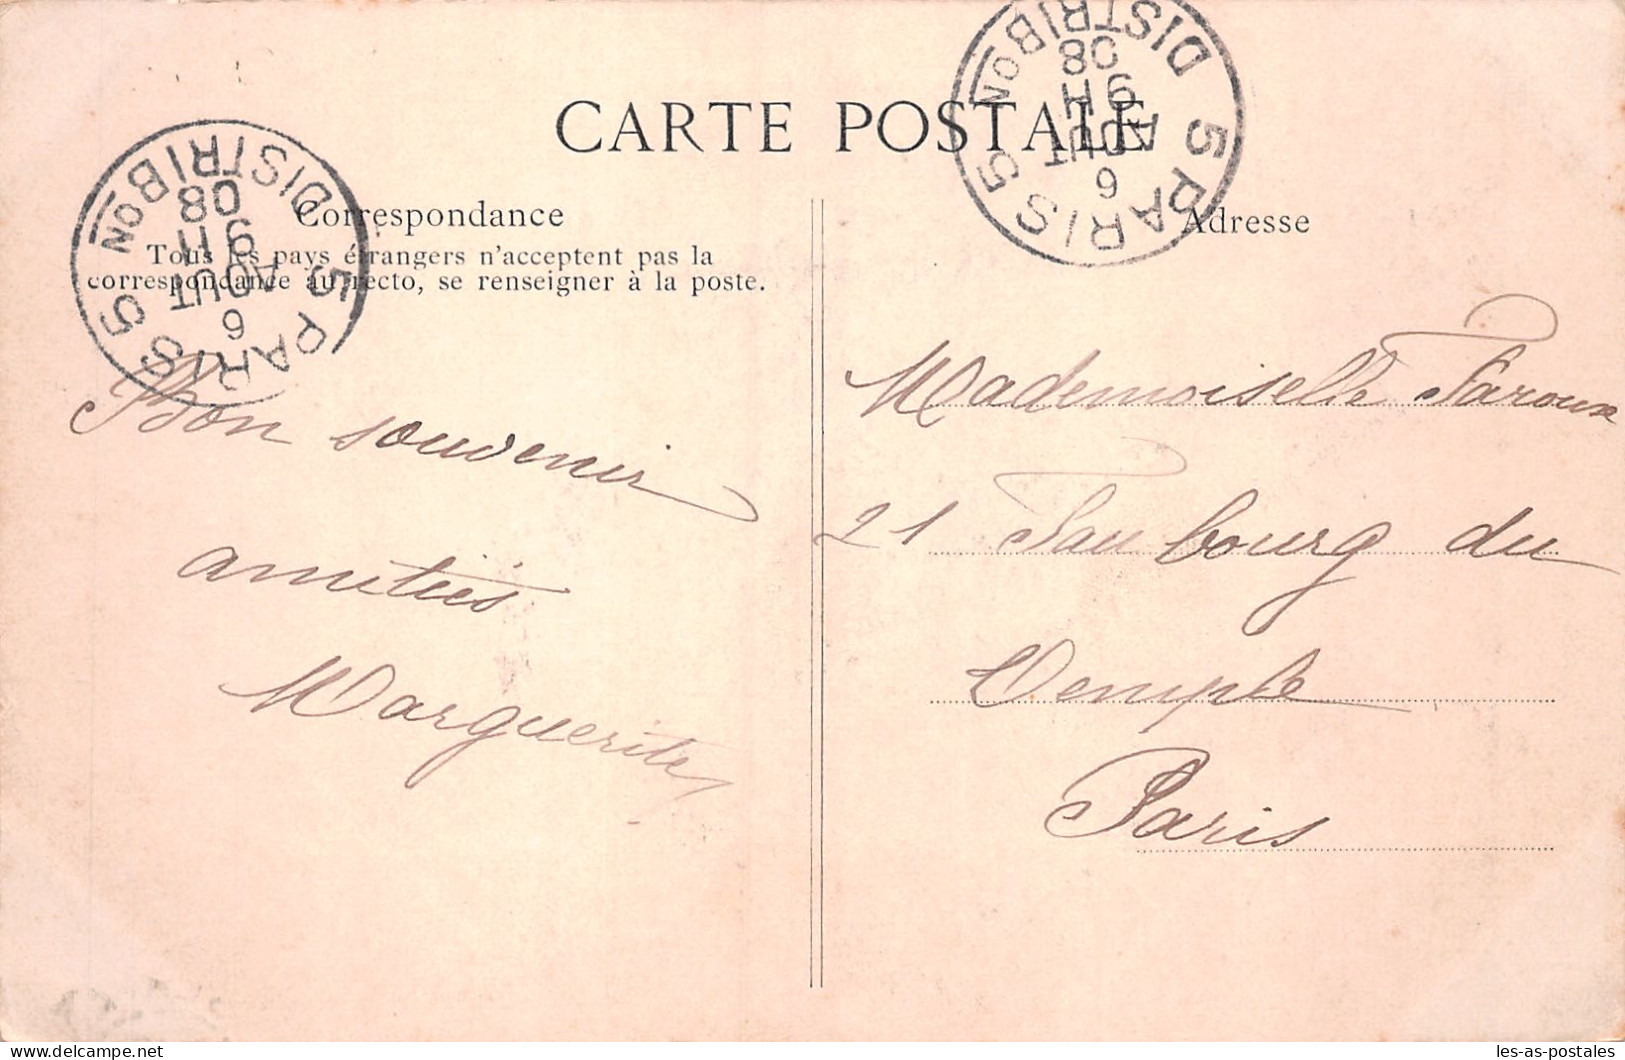 CARTE POSTALE
Correspondance
Tous les pays étrangers n'acceptent pas la
correspondance au recto, se renseigner à la poste.
Bon souvenir
amitiés
Marguerite
Adresse
Mademoiselle Faroux
21 Faubourg du
Temple
Paris
PARIS 5
DISTRIBON
9H
6 AOUT
08
5
PARIS 5
DISTRIBON
9H
6 AOUT
08
5
les-as-postales